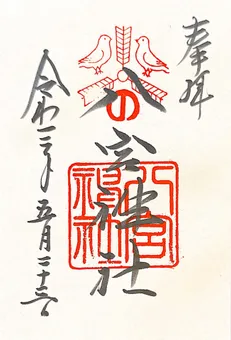 奉拝
八の宮神社
八宮神社
令和三年五月二十三日